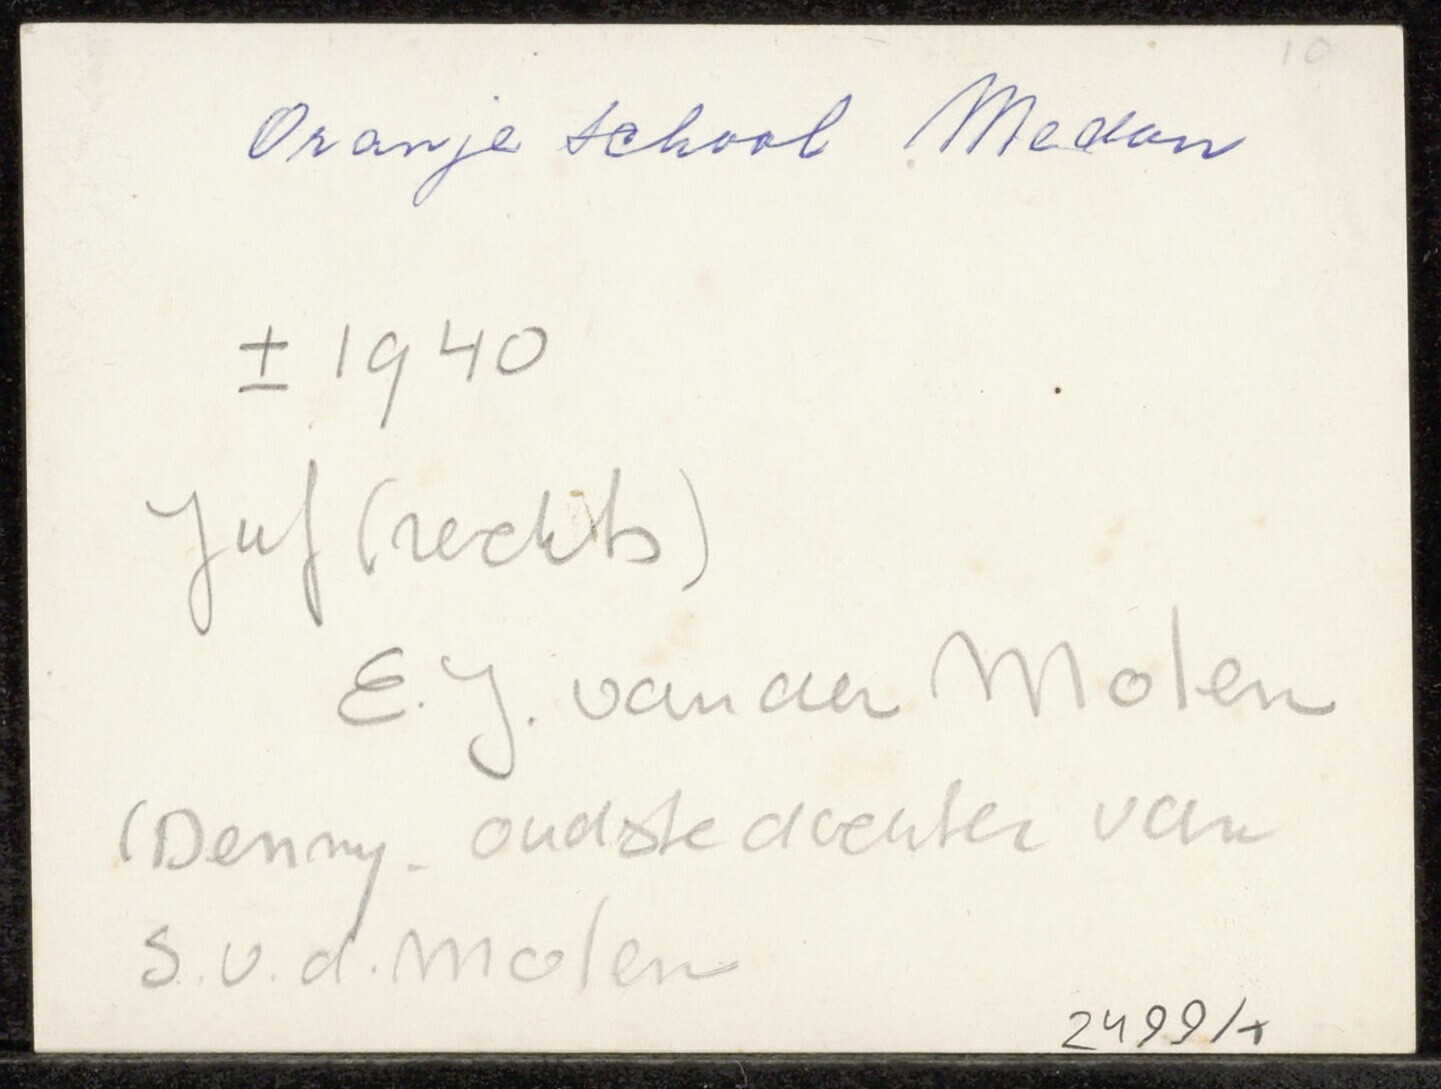 10
Oranje school Medan
± 1940
Juf (rechts)
E. J. van der Molen
(Denny - oudste dochter van
S. v. d. Molen
2499/+